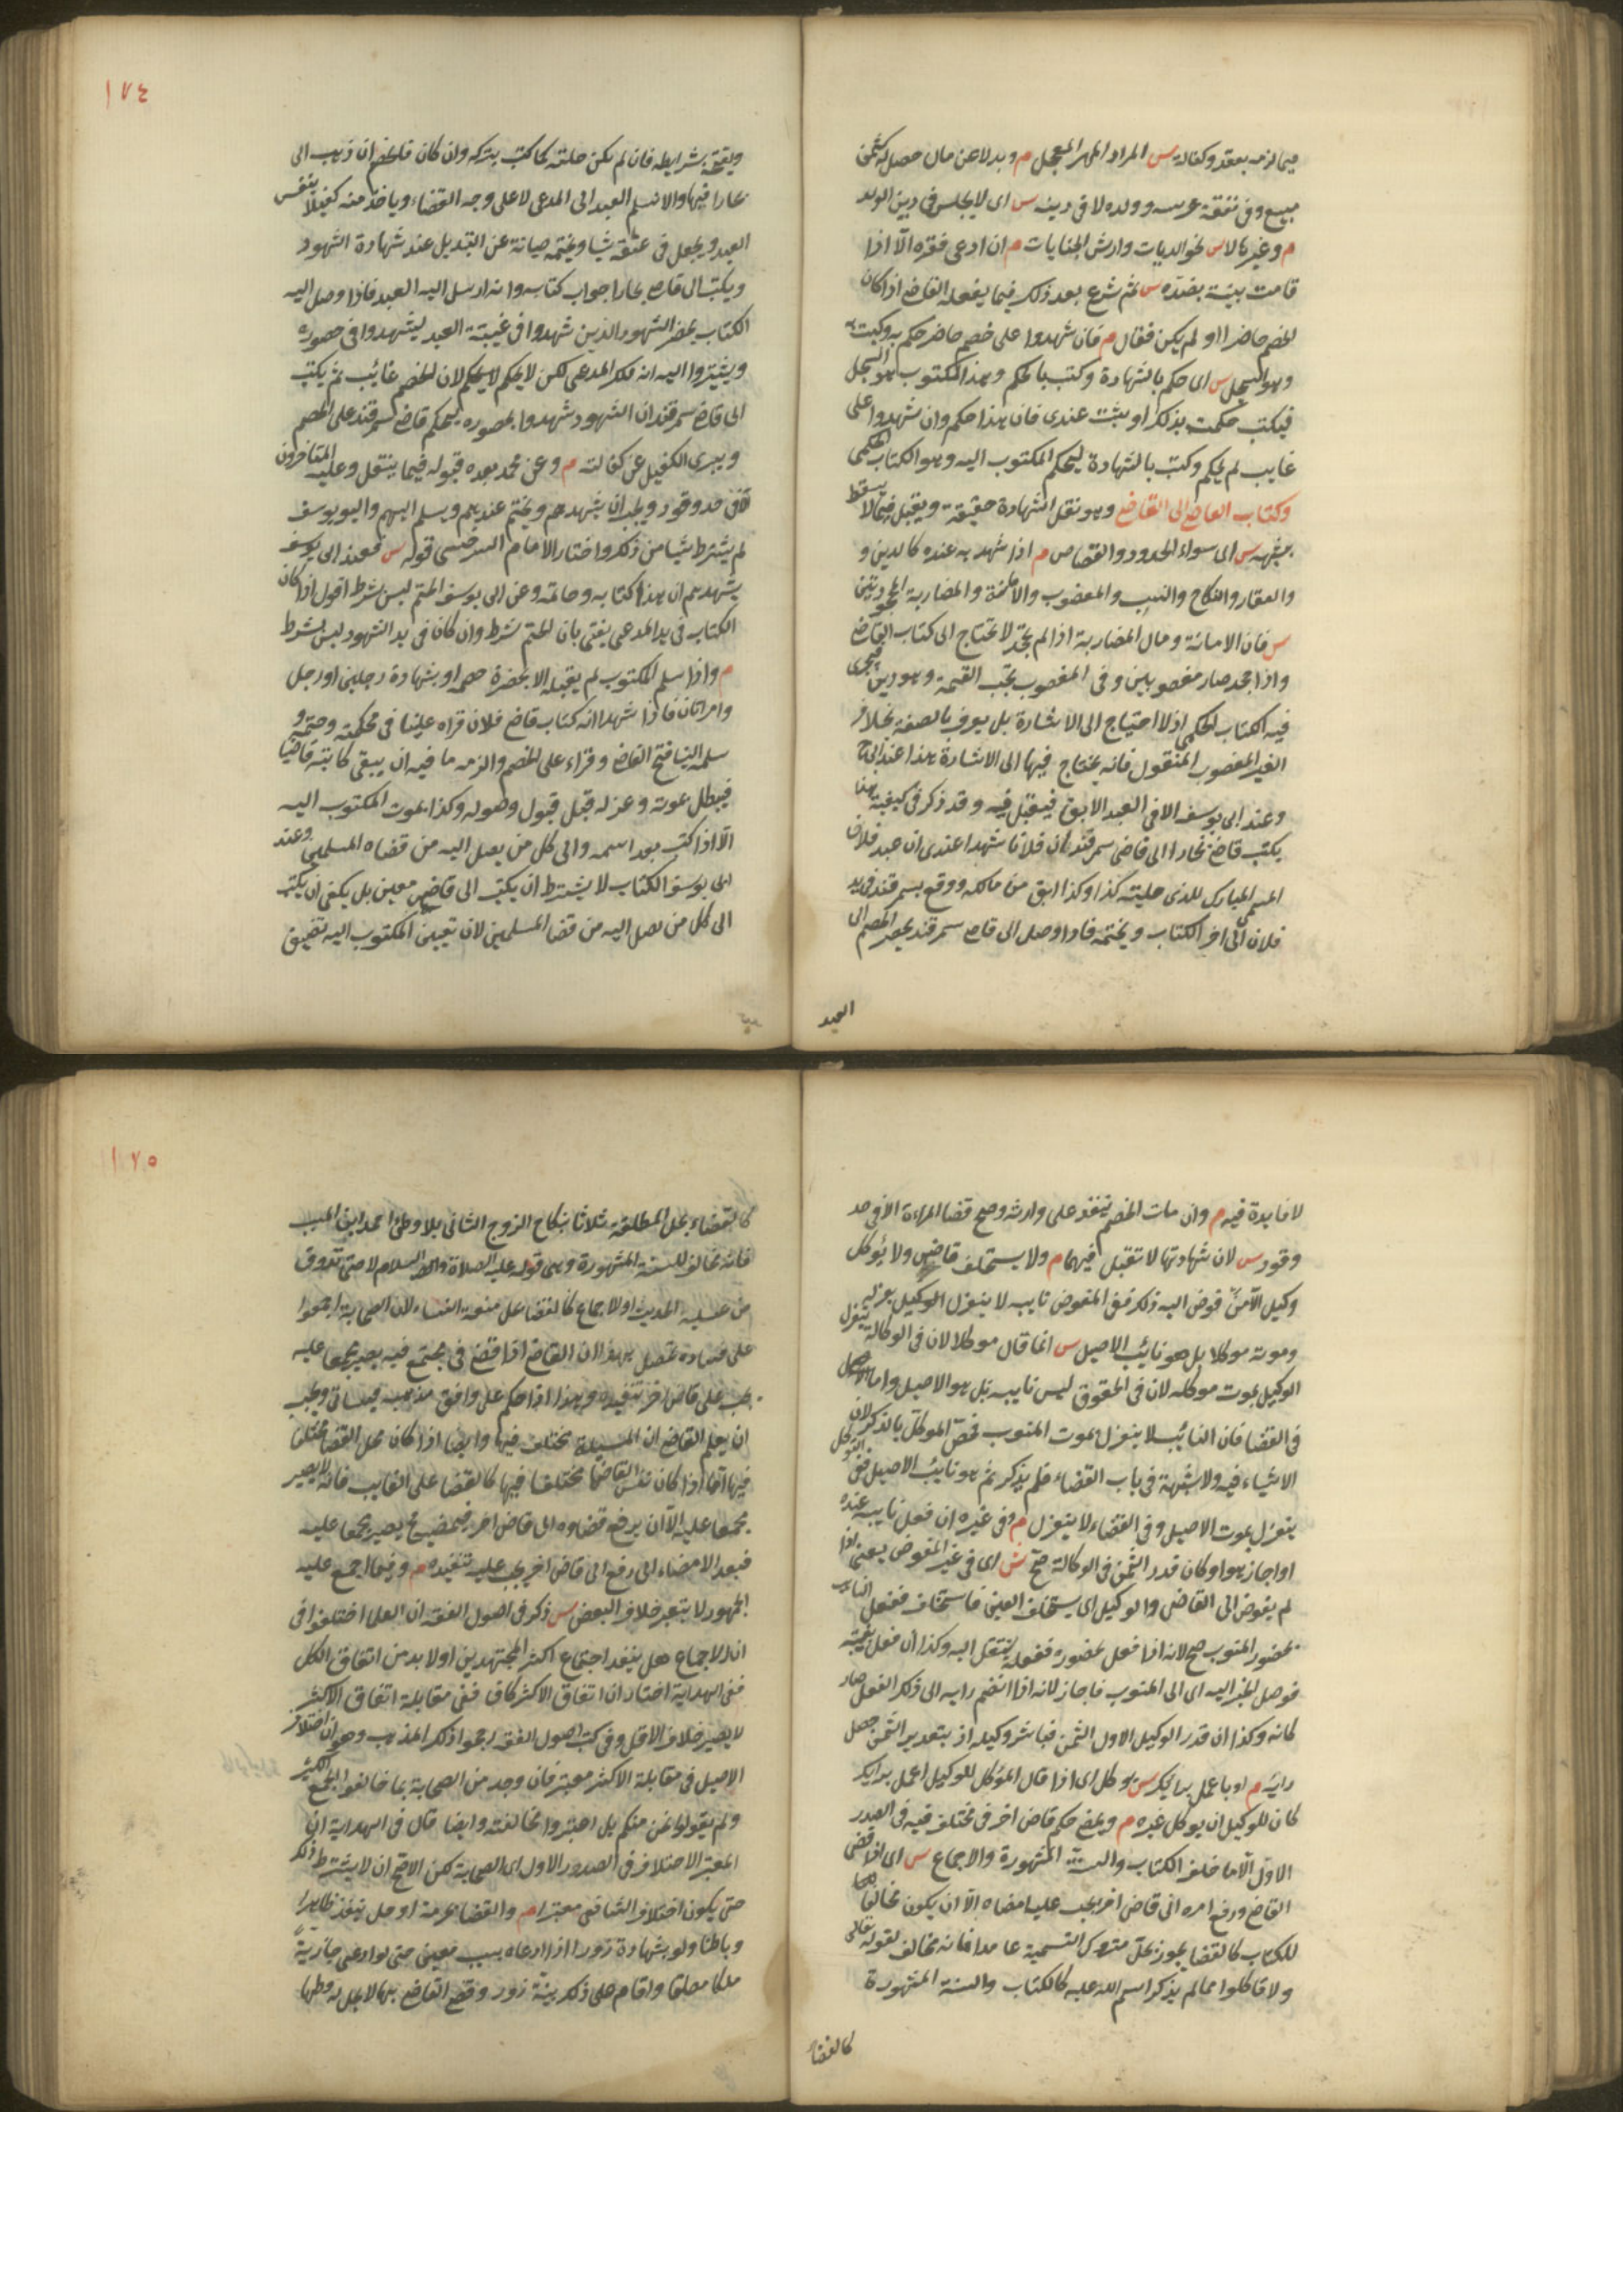 فيما لزمه بعقد وكفالة س المراد المهر المعجل م وبدلا عن مال حصل له كثمن
مبيع وفي نفقة عرسه وولده لا في دينه س اى لا يحبس في دين الولد
م وغيرها لا س نحو الديات وارش الجنايات م ان ادعى فقره الّا اذا
قامت بينة بضدّه س ثم شرع بعد ذلك فيما يفعله القاضى اذا كان
الخصم حاضرا او لم يكن فقال م فان شهدوا على خصم حاضر حكم به وكتب به
وهو السجل س اى حكم بالشهادة وكتب بالحكم وهذا المكتوب هو السجل
فيكتب حكمت بذلك او ثبت عندى فان هذا حكم وان شهدوا على
غايب لم يحكم وكتب بالشهادة ليحكم المكتوب اليه وهو الكتاب الحكمى
وكتاب القاضى الى القاضى وهو نقل الشهادة حقيقة ويقبل فيما لا يسقط
بشبهة س اى سواء الحدود والقصاص م اذا شهد به عنده كالدين و
والعقار والنكاح والنسب والمغصوب والامانة والمضاربة المجحودتين
س فان الامانة ومال المضاربة اذا لم يجحد لا يحتاج الى كتاب القاضى
واذا جحد صار مغصوبين وفى المغصوب تجب القيمة وهو دين فيجرى
فيه الكتاب الحكمى اذ لا احتياج الى الاشارة بل يعرف بالصفة بخلاف
الغير المغصوب المنقول فانه يحتاج فيها الى الاشارة هذا عند ابى ح
وعند ابى يوسف الا في العبد الآبق فيقبل فيه وقد ذكر في كيفية هذا
يكتب قاضى بخارا الى قاضى سمرقند ان فلانا شهدا عندى ان عبد فلان
المسمى المبارك للذى حليته كذا وكذا ابق من مالكه ووقع بسمرقند فى يد
فلان الى اخر الكتاب ويختمه فاذا وصل الى قاضى سمرقند يحضر الخصم الى
العبد
١٧٤
ويفتحه بشرايطه فان لم يكن حليته كما كتب يتركه وان كان فللخصم ان ذهب الى
بخارا فبها والا يسلم العبد الى المدعى لا على وجه القضاء وياخذ منه كفيلا بنفس
العبد ويجعل فى عنقه شيا ويختمه صيانة عن التبديل عند شهادة الشهود
ويكتب الى قاضى بخارا جواب كتابه وانه ارسل اليه العبد فاذا وصل اليه
الكتاب يحضر الشهود الذين شهدوا فى غيبة العبد ليشهدوا فى حضوره
ويشيروا اليه انه ملك المدعى لكن لا يحكم لا يحكم لان الخصم غائب ثم يكتب
الى قاضى سمرقند ان الشهود شهدوا بحضوره ليحكم قاضى سمرقند على الخصم
ويبرى الكفيل عن كفالته م وعن محمد بعده قبوله فيما ينقل وعليه المتاخرون
لا فى حد وقود ويجب ان يشهدهم ويختم عندهم ويسلم اليهم وابو يوسف
لم يشترط شيا من ذلك واختار الامام السرخسى قوله س فعند ابى يوسف
يشهدهم ان هذا كتابه وخاتمه وعن ابى يوسف الختم ليس بشرط اقول اذا كان
الكتاب فى يد المدعى يفتى بان الختم شرط وان كان فى يد الشهود ليس بشرط
م واذا سلم المكتوب لم يقبله الا بحضرة خصمه او بشهادة رجلين او رجل
وامراتان فاذا شهدا انه كتاب قاضى فلان قراه علينا فى محكمته وختمه و
سلمه الينا فتح القاضى وقراء على الخصم والزمه ما فيه ان يبقى كاتبه قاضيا
فيبطل بموته وعزله قبل قبول وصوله وكذا بموت المكتوب اليه
الّا اذا كتب بعد اسمه والى كل من يصل اليه من قضاه المسلمين وعند
ابى يوسف الكتاب لا يشترط ان يكتب الى قاضى معين بل يكفى ان يكتب
الى كل من يصل اليه من قضا المسلمين لان تعيين المكتوب اليه تضييق
لا فايدة فيه م وان مات الخصم ينفذ على وارثه وصح قضا المراءة الا فى حد
وقود س لان شهادتها لا تقبل فيهما م ولا يستخلف قاضى ولا يوكل
وكيل الّا من فوض اليه ذلك ففى المفوض نايبه لا ينعزل الوكيل بعزله
وموته موكلا بل هو نائب الاصيل س انما قال موكلا لان فى الوكالة ينعزل
الوكيل بموت موكله لان فى الحقوق ليس نايبه بل هو الاصيل واما
فى القضا فان النائب لا ينعزل بموت المنوب فخص الموكل بالذكر لان
الاشياء فيه ولا شبهة فى باب القضاء فلم يذكر ثم هو نايب الاصيل ففى التوكيل
ينعزل بموت الاصيل وفى القضاء لا ينعزل م وفى غيره ان فعل نايبه عنده
او اجاز هو او كان قدر الثمن فى الوكالة صح ش اى فى غير المفوض يعنى اذا
لم يفوض الى القاضى والوكيل اى يستخلف العينى فاستخلف ففعل النايب
بحضور المنوب صح لانه اذا فعل بحضوره ففعله ينتقل اليه وكذا ان فعل بغيبته
فوصل الخبر اليه اى الى المنوب فاجاز لانه اذا انضم رايه الى ذلك الفعل صار
كانه وكذا ان قدر الوكيل الاول الثمن فباشر وكيله اذ بتقدير الثمن حصل
رايه م او باعمل برايك س يوكل اى اذا قال الموكل للوكيل اعمل برايك
كان للوكيل ان يوكل غيره م ويمضى حكم قاض اخر فى مختلف فيه فى الصدر
الاول الّا ما خالف الكتاب والسنة المشهورة والاجماع س اى اذا قضى
القاضى ورفع امره الى قاض اخر يجب عليه امضاه الّا ان يكون مخالفا
للكتاب كالقضا بجوز بحل متروك التسمية عامدا فانه مخالف لقوله تعالى
ولا تاكلوا مما لم يذكر اسم الله عليه كالكتاب والسنة المشهورة
كالقضا
١٧٥
كالقضاء بحل المطلقة ثلاثا بنكاح الزوج الثانى بلا وطئ احمد ابن المسيب
فانه مخالف للسنة المشهورة وهى قوله عليه الصلاة والسلام لا حتى تذوق
من عسيلته الحديث او الاجماع كالقضا على متعة النساء لان الصحابة اجمعوا
على فساده تحصل بهذا ان القاضى اذا قضى فى مجتهد فيه يصير مجمعا عليه
يجب على قاض اخر تنفيذه وهذا اذا حكم على وافق مذهبه ويجب
ان يعلم القاضى ان المسيلة مختلف فيها وايضا اذا كان محل القضا مختلفا
فيها اما اذا كان نفس القاضى مختلفا فيها كالقضا على الغايب فانه لا يصير
مجمعا عليه الّا ان يرفع قضاوه الى قاض اخر فيمضيه يصير مجمعا عليه
فبعد الامضاء اى رفع الى قاض اخر يجب عليه تنفيذه م وفيما اجمع عليه
الجمهور لا يعتبر خلاف البعض س ذكر فى اصول الفقه ان العلما اختلفوا فى
ان الاجماع هل ينعقد اجتماع اكثر المجتهدين او لا بد من اتفاق الكل
ففى الهداية اختار ان اتفاق الاكثر كاف ففى مقابلة اتفاق الاكثر
لا يصير خلاف الاقل وفى كتب اصول الفقه رجحوا ذلك المذهب وهو ان اختلاف
الاصيل فى مقابلة الاكثر معتبر فان وجد من الصحابة بما خالفوا الجمع الكثير
ولم يقولوا نحن منكم بل اعتبروا مخالفته وايضا قال فى الهداية ان
المعتبر الاختلاف فى الصدر الاول اى الصحابة لكن الاصح ان لا يشترط ذلك
حتى يكون اختلاف الشافعى معتبرا م والقضا بحرمة او حل ينفذ ظاهرا
وباطنا ولو بشهادة زورا اذا ادعاه بسبب معين حتى لو ادعى جارية
ملكا مطلقا واقام على ذلك بينة زور وقضى القاضى بها لا يحل له وطيها